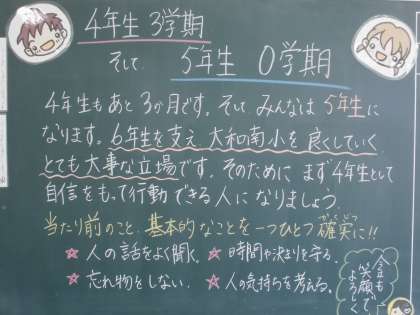 4年生 3学期
そして 5年生 0学期
4年生もあと3か月です。そして みんなは 5年生に
なります。6年生を支え 大和南小を良くしていく
とても大事な立場です。そのために まず4年生として
自信をもって行動できる人になりましょう。
当たり前のこと、基本的なことを一つひとつ確実に!!
かくじつ
☆ 人の話をよく聞く。 ☆ 時間や決まりを守る。
☆ 忘れ物をしない。 ☆ 人の気持ちを考える。
今年も
笑顔で
よろしく